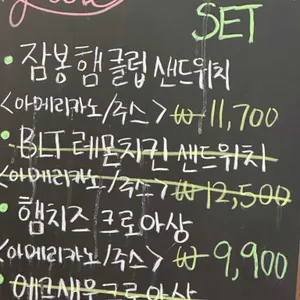 SET
• 잠봉햄클럽샌드위치
<아메리카노/주스> ₩11,700
• BLT 레몬치킨 샌드위치
<아메리카노/주스> ₩12,500
• 햄치즈 크로아상
<아메리카노/주스> ₩9,900
• 에그새우크로아상